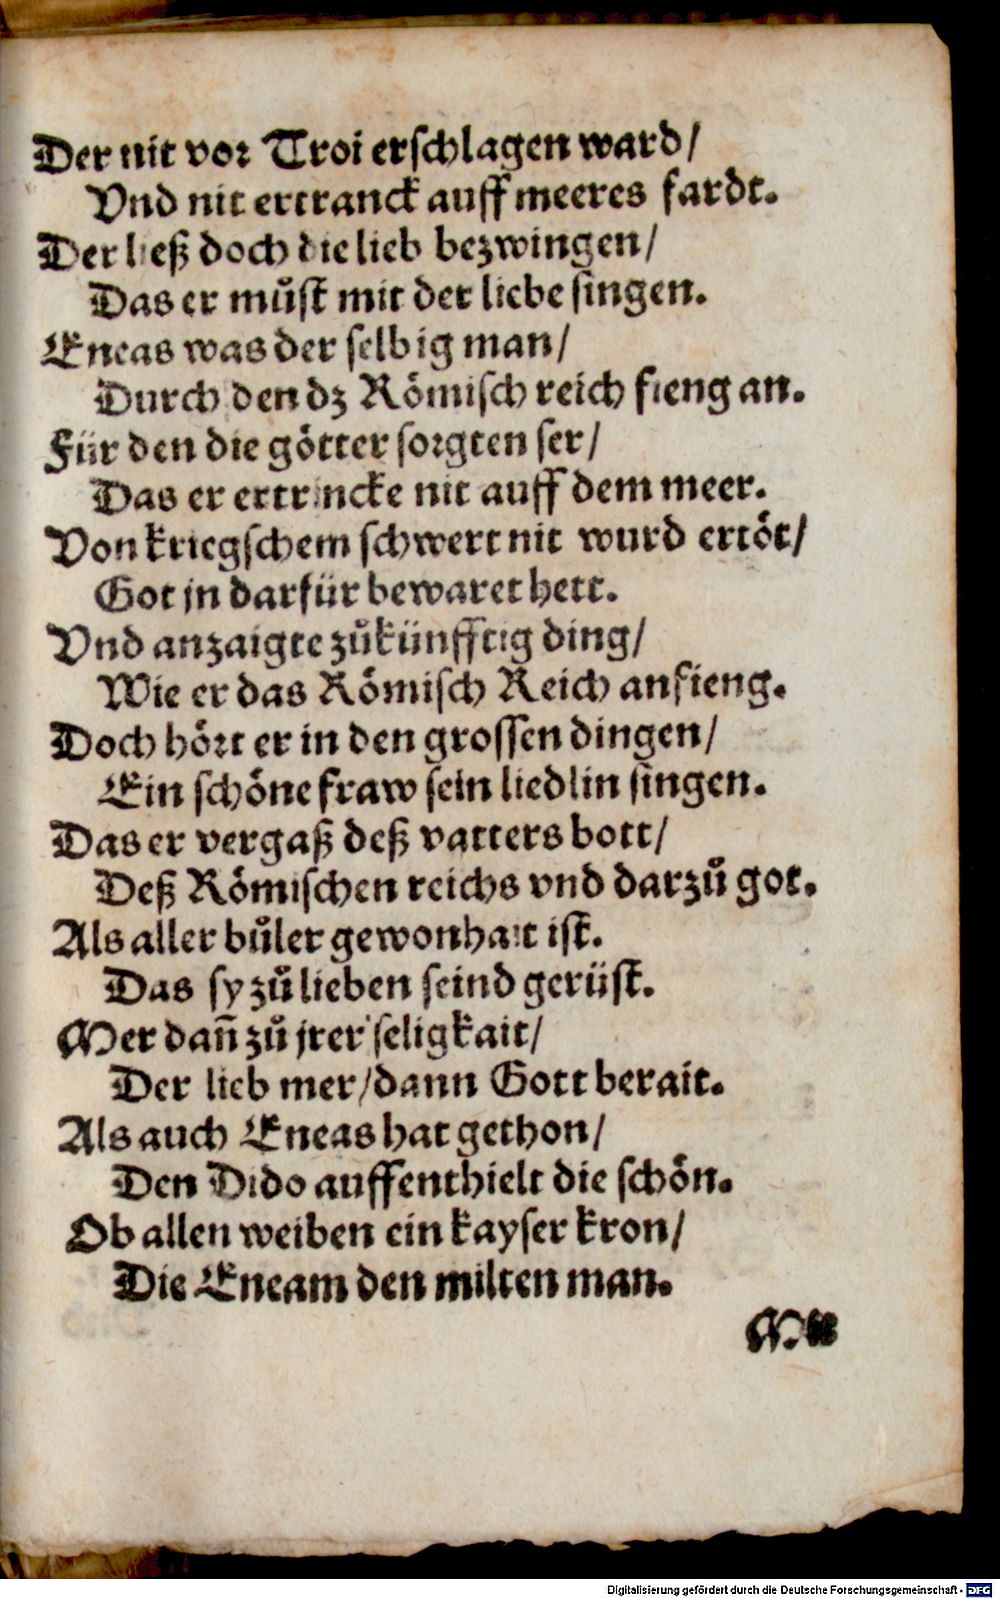 Der nit vor Troi erschlagen ward/
Vnd nit ertranck auff meeres fardt.
Der ließ doch die lieb bezwingen/
Das er můst mit der liebe singen.
Eneas was der selbig man/
Durch den dz Römisch reich fieng an.
Für den die götter sorgten ser/
Das er ertrincke nit auff dem meer.
Von kriegschem schwert nit wurd ertöt/
Got jn darfür bewaret hett.
Vnd anzaigte zůkünfftig ding/
Wie er das Römisch Reich anfieng.
Doch hört er in den grossen dingen/
Ein schöne fraw sein liedlin singen.
Das er vergaß deß vatters bott/
Deß Römischen reichs vnd darzů got.
Als aller bůler gewonhait ist.
Das sy zů lieben seind gerüst.
Mer dañ zů jrer seligkait/
Der lieb mer/dann Gott berait.
Als auch Eneas hat gethon/
Den Dido auffenthielt die schön.
Ob allen weiben ein kayser kron/
Die Eneam den milten man.
Digitalisierung gefördert durch die Deutsche Forschungsgemeinschaft - DFG